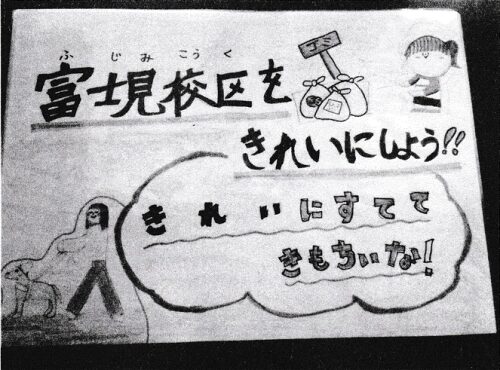 ふじみこうく
ゴミ
富士見校区を
きれいにしよう!!
きれいにすてて
きもちいいな!